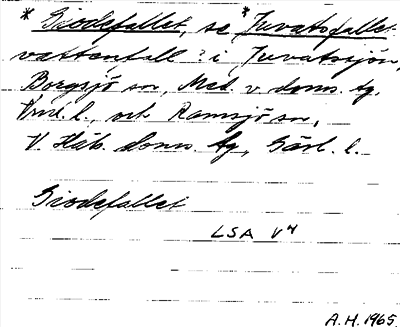 * Giodefallet, se * Juvatsfallet
vattenfall i Juvatsjön,
Borgsjö sn, Med. v. doms. tg,
Vnl. l., och Ramsjö sn,
V. Häls. doms. tg, Gävl. l.
Giodefallet
LSA V4
A.H. 1965